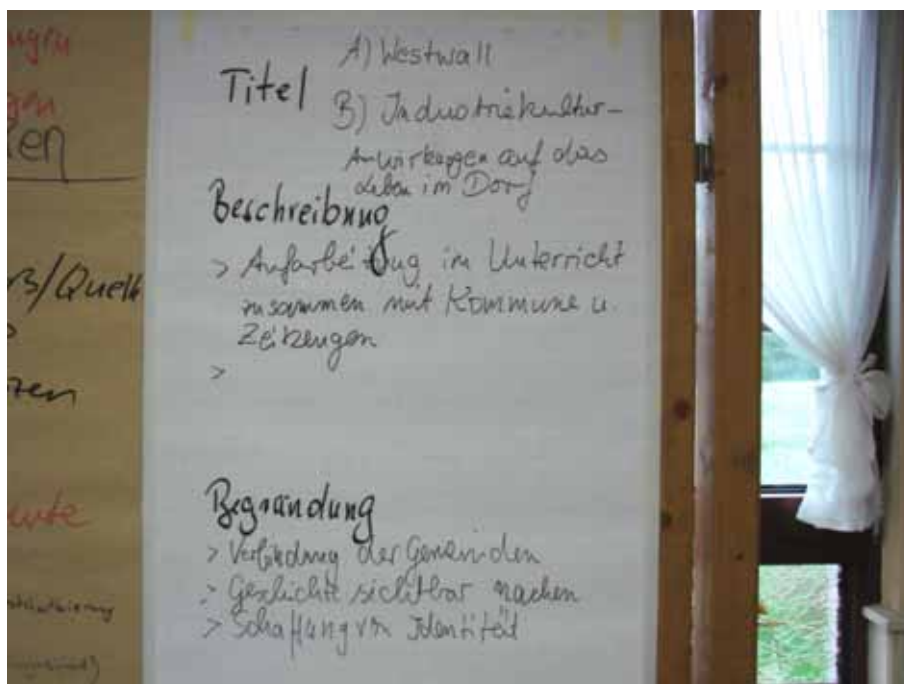 ngen
gen
en
B/Quell
zen
eute
Titel
A) Westwall
B) Industriekultur-
Auswirkungen auf das
Leben im Dorf
Beschreibung
> Aufarbeitung im Unterricht
zusammen mit Kommune u.
Zeitzeugen
>
Begründung
> Verbindung der Gemeinden
> Geschichte sichtbar machen
> Schaffung von Identität